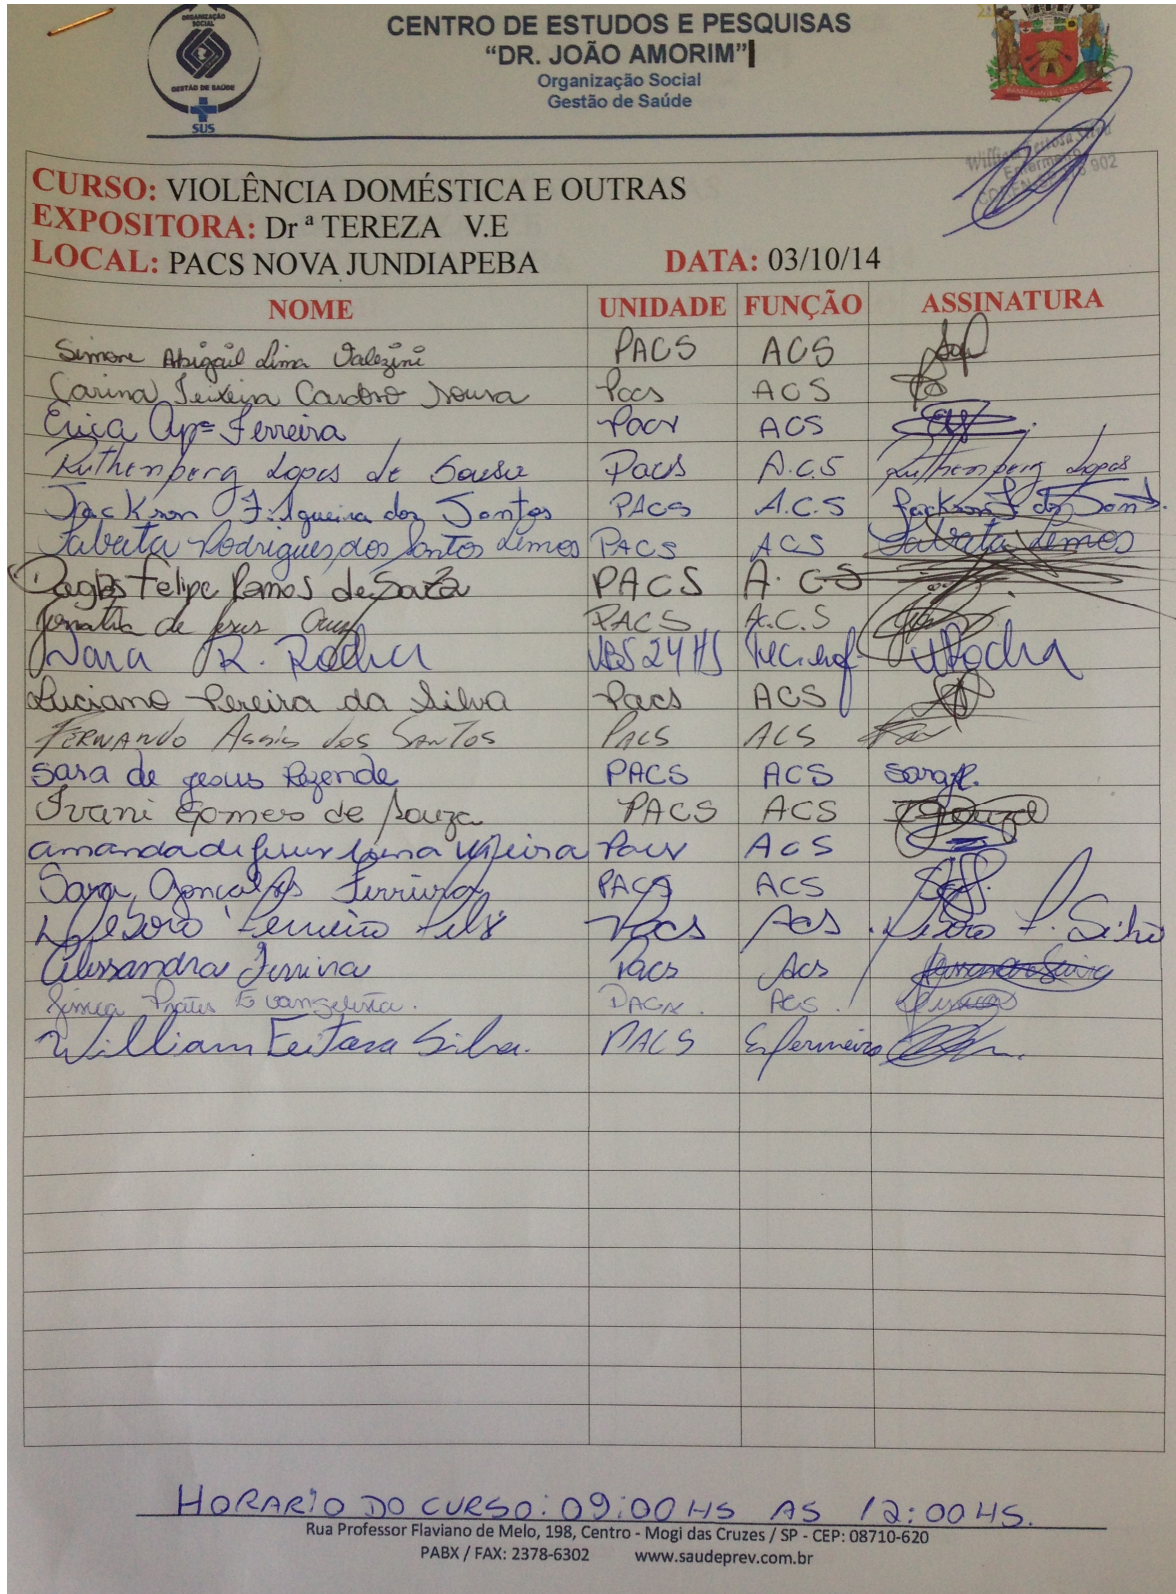 ORGANIZAÇÃO SOCIAL
GESTÃO DE SAÚDE
SUS
CENTRO DE ESTUDOS E PESQUISAS
“DR. JOÃO AMORIM”
Organização Social
Gestão de Saúde
CURSO: VIOLÊNCIA DOMÉSTICA E OUTRAS
EXPOSITORA: Dr ª TEREZA V.E
LOCAL: PACS NOVA JUNDIAPEBA DATA: 03/10/14
NOME UNIDADE FUNÇÃO ASSINATURA
Simone Abigail Lima Valezini PACS ACS
Carina Teixeira Cardoso Sousa Pacs ACS
Erica Apª Ferreira Pacs ACS
Ruthenberg Lopes de Sousa Pacs A.C.S Ruthenberg Lopes
Jackson Filgueira dos Santos PACS A.C.S Jackson F dos Santos
Tabata Rodrigues dos Santos Lemos PACS ACS Tabata Lemos
Felipe Ramos de Souza PACS A.CS
de Jesus PACS A.C.S
R. Rocha UBS 24 HS Rocha
Luciano Pereira da Silva Pacs ACS
FERNANDO ASSIS dos SANTOS PACS ACS
Sara de Jesus Rezende PACS ACS
Ivani Gomes de Souza PACS ACS
Amanda de Jesus Pacs ACS
Sara Gonçalves Ferreira PACS ACS
Pacs Acs
Alessandra Ferreira Pacs Acs
Evangelista. ACS.
William Feitosa Silva. PACS Enfermeiro
HORARIO DO CURSO: 09:00 HS AS 12:00 HS.
Rua Professor Flaviano de Melo, 198, Centro - Mogi das Cruzes / SP - CEP: 08710-620
PABX / FAX: 2378-6302 www.saudeprev.com.br